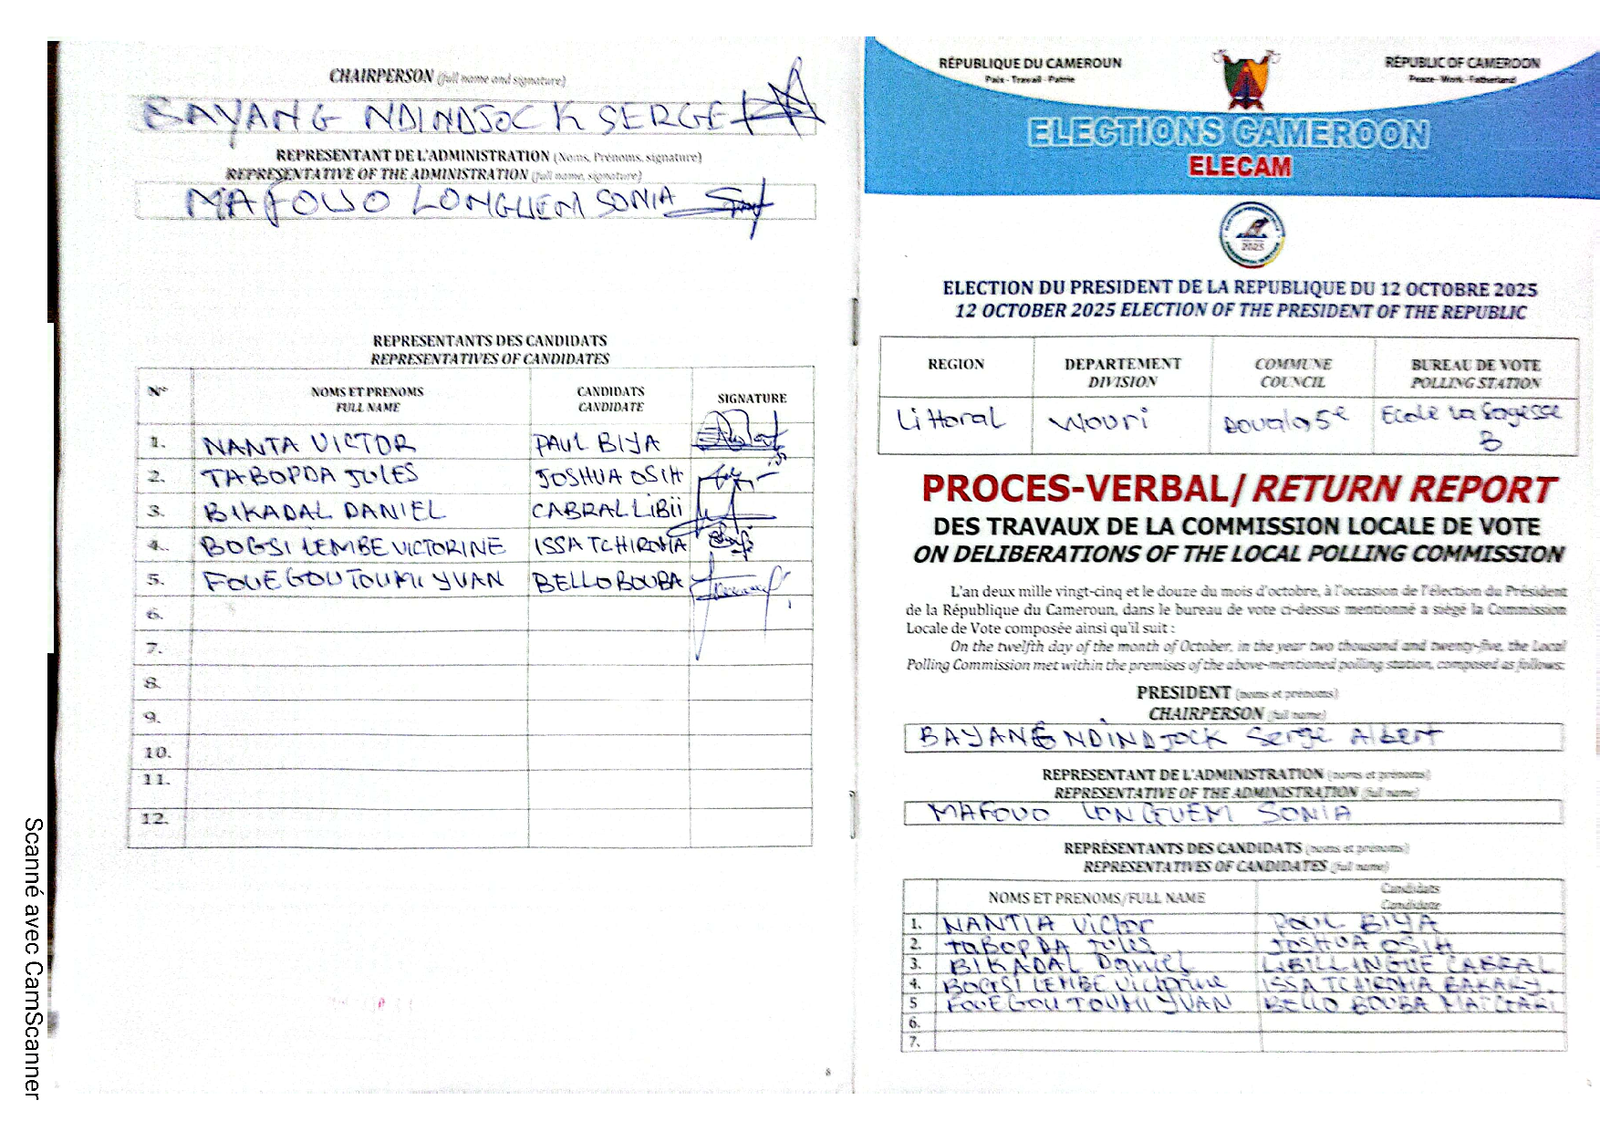 CHAIRPERSON (full name and signature)
BAYANG NDINDJOCK SERGE
REPRESENTANT DE L'ADMINISTRATION (Noms, Prénoms, signature)
REPRESENTATIVE OF THE ADMINISTRATION (full name, signature)
MAFOUO LONGUEM SONIA
REPRESENTANTS DES CANDIDATS
REPRESENTATIVES OF CANDIDATES
N° NOMS ET PRENOMS CANDIDATS SIGNATURE
FULL NAME CANDIDATE
1. NANTA VICTOR PAUL BIYA
2. TABOPDA JULES JOSHUA OSIH
3. BIKADAL DANIEL CABRAL LiBii
4. BOGSI LEMBE VICTORINE ISSA TCHIROMA
5. FOUEGOU TOUMI YVAN BELLO BOUBA
6.
7.
8.
9.
10.
11.
12.
8
Scanné avec CamScanner
RÉPUBLIQUE DU CAMEROUN
Paix - Travail - Patrie
REPUBLIC OF CAMEROON
Peace - Work - Fatherland
ELECTIONS CAMEROON
ELECAM
2025
ELECTION DU PRESIDENT DE LA REPUBLIQUE DU 12 OCTOBRE 2025
12 OCTOBER 2025 ELECTION OF THE PRESIDENT OF THE REPUBLIC
REGION DEPARTEMENT COMMUNE BUREAU DE VOTE
DIVISION COUNCIL POLLING STATION
Littoral Wouri Douala 5e Ecole La Sagesse
B
PROCES-VERBAL/ RETURN REPORT
DES TRAVAUX DE LA COMMISSION LOCALE DE VOTE
ON DELIBERATIONS OF THE LOCAL POLLING COMMISSION
L'an deux mille vingt-cinq et le douze du mois d'octobre, à l'occasion de l'élection du Président
de la République du Cameroun, dans le bureau de vote ci-dessus mentionné a siégé la Commission
Locale de Vote composée ainsi qu'il suit :
On the twelfth day of the month of October, in the year two thousand and twenty-five, the Local
Polling Commission met within the premises of the above-mentioned polling station, composed as follows:
PRESIDENT (noms et prénoms)
CHAIRPERSON (full name)
BAYANG NDINDJOCK Serge Albert
REPRESENTANT DE L'ADMINISTRATION (noms et prénoms)
REPRESENTATIVE OF THE ADMINISTRATION (full name)
MAFOUO LONGUEM SONIA
REPRÉSENTANTS DES CANDIDATS (noms et prénoms)
REPRESENTATIVES OF CANDIDATES (full name)
NOMS ET PRENOMS/FULL NAME Candidats
Candidate
1. NANTIA Victor PAUL BIYA
2. TABOPDA Jules JOSHUA OSIH
3. BIKADAL Daniel LIBII LI NGUE CABRAL
4. BOGSI LEMBE Victorine ISSA TCHIROMA BAKARY.
5 FOUEGOU TOUMI YVAN BELLO BOUBA MAIGARI
6.
7.